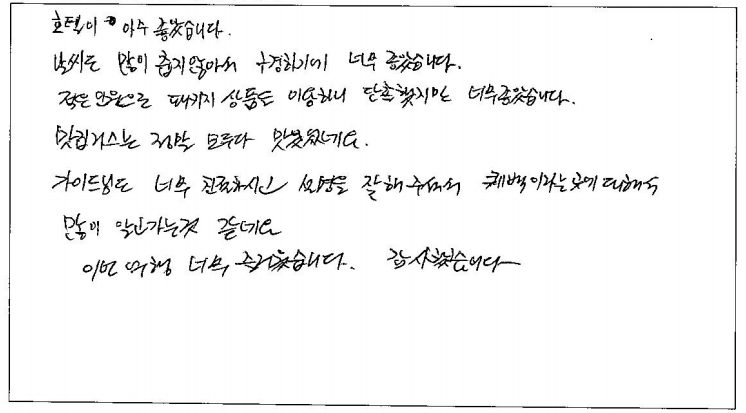 호텔이 아주 좋았습니다.
날씨도 많이 춥지않아서 구경하기에 너무 좋았습니다.
적은 인원으로 패키지 상품도 이용하니 단촐했지만 너무좋았습니다.
맛집거스는 정말 모두다 맛있었네요.
가이드님도 너무 친절하시고 설명을 잘해주셔서 퀘벡이라는곳에 대해서
많이 알고가는것 같네요
이번 여행 너무 즐거웠습니다. 감사했습니다